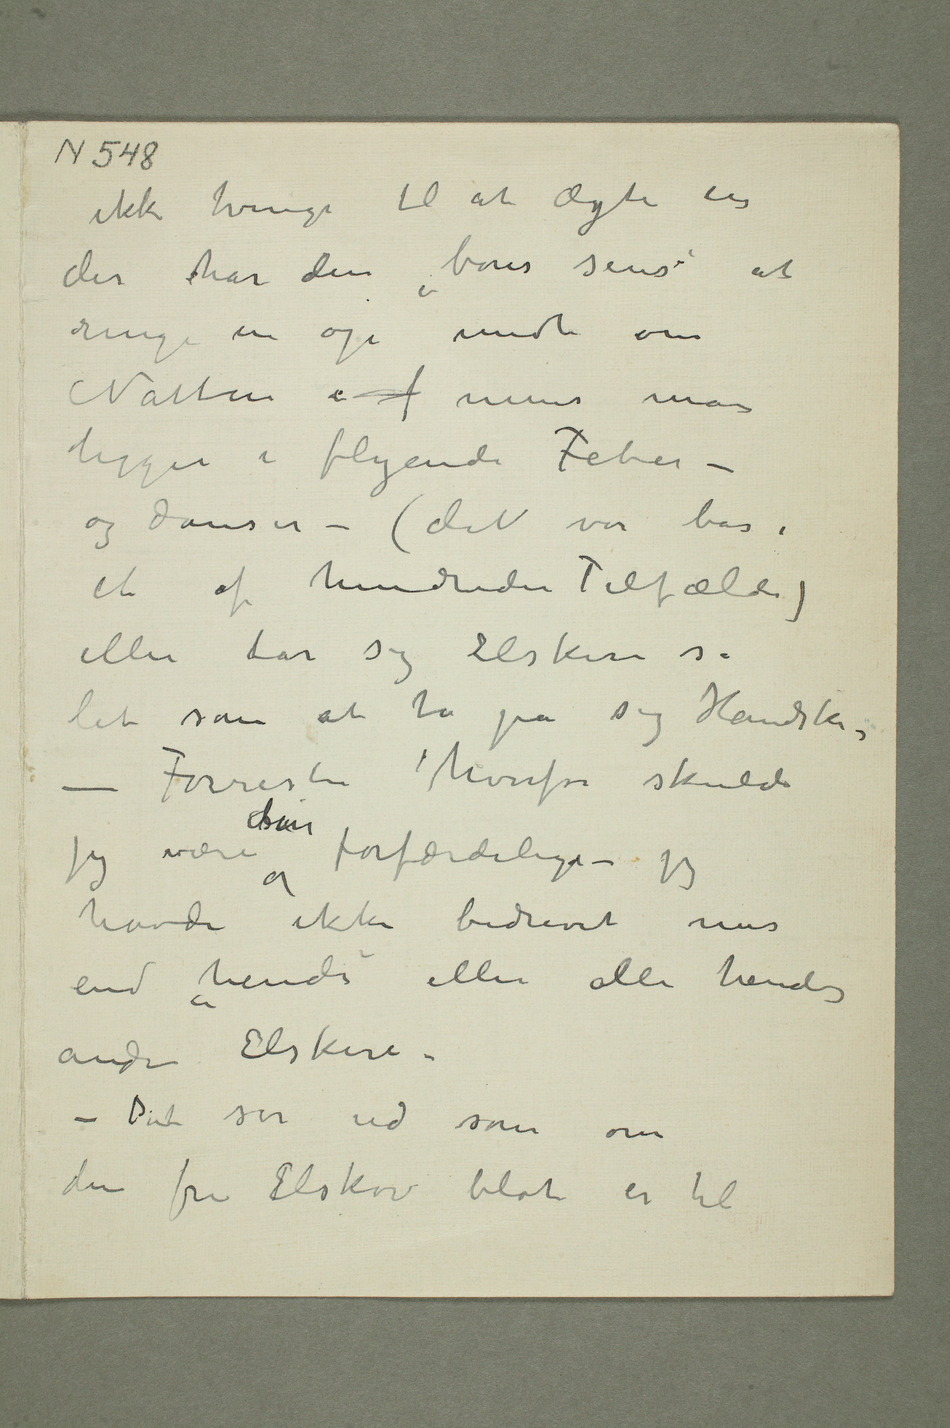 N 548
ikke tvinge til at ægte en
der har den „bons sens“ at
ringe en op midt om
Natten i f mens man
ligger i flyende Feber –
og danser – (det var bas.
et af hundreder Tilfælde)
eller tar sig Elskere så
let som at ta på sig Handsker
— Forresten hvorfor skulde
jeg være den forfærdelige – jeg
havde ikke bedrevet mer
end hende eller alle hendes
andre Elskere.
– Det ser ud som om
den fri Elskov blot er til